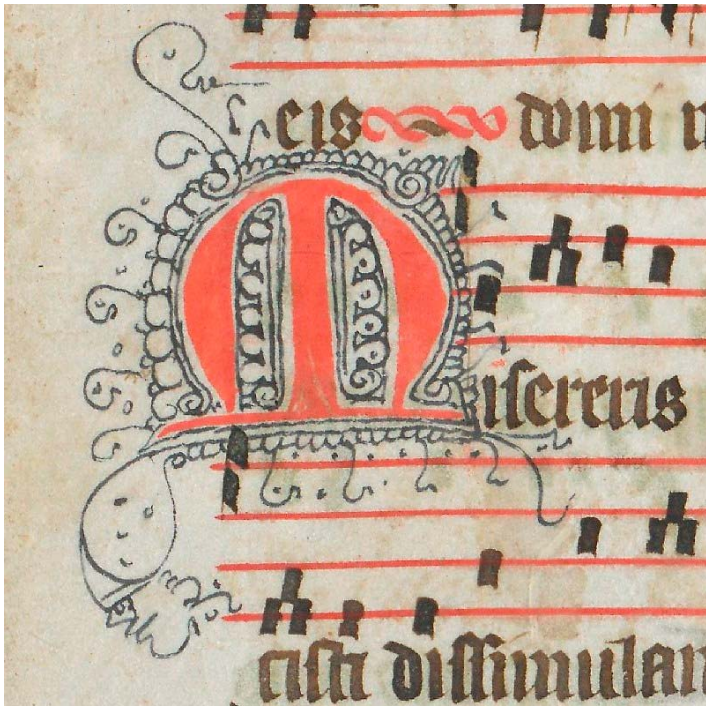 eis domi
Misereris
cisti dissimulan